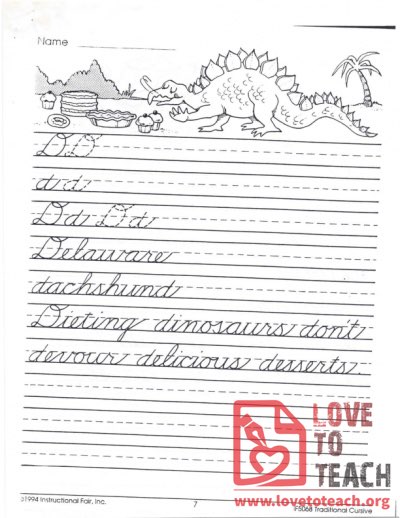 Name
D D
d d
Dd Dd
Delaware
dachshund
Dieting dinosaurs don't
devour delicious desserts.
LOVE
TO
TEACH
www.lovetoteach.org
©1994 Instructional Fair, Inc.
7
IF5068 Traditional Cursive